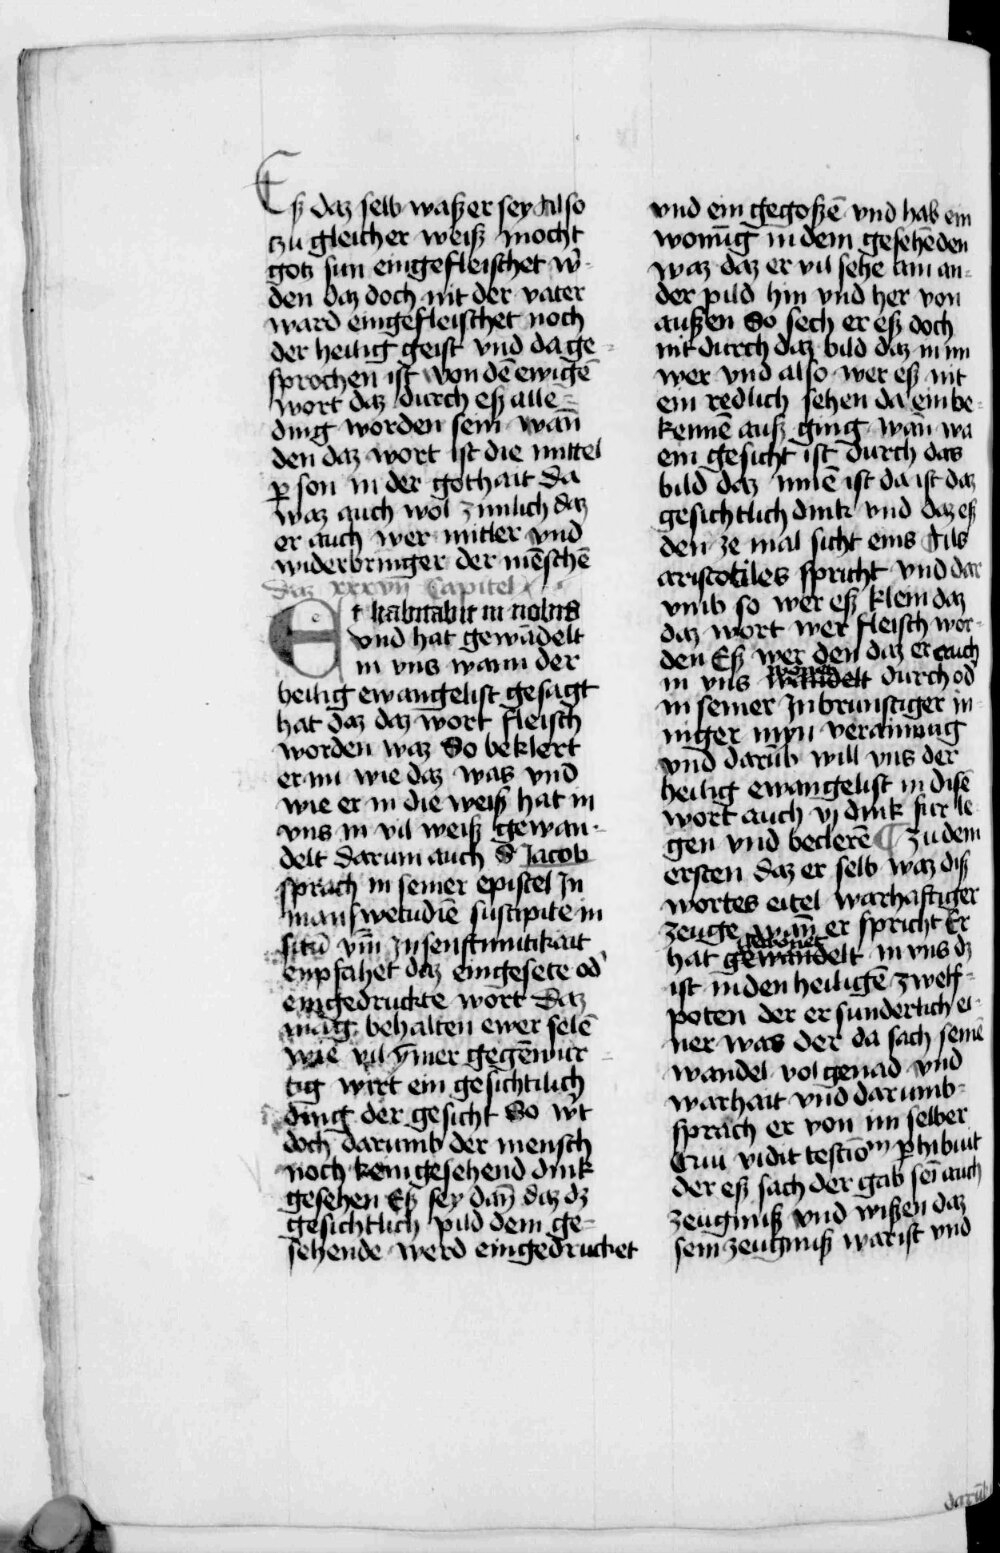 Eß daz selb waßer sey Also
tzu gleicher weiß mocht
gotz sun eingefleischet w̕-
den daz doch nit der vater
ward eingefleischet noch
der heilig geist vnd da ge-
sprochen ist von dē ewigē
wort daz durch eß alle
ding worden sein wan̄
den daz wort ist die mittel
ꝑson in der gothait da
waz auch wol zimlich daz
er auch wer mitler vnd
widerbringer der mēschē
Daz xxxvij Capitel
Et habitabit in nobis
vnd hat gewādelt
in vns wann der
heilig ewangelist gesagt
hat daz daz wort fleisch
worden waz So beklert
er nu wie daz was vnd
wie er in die weiß hat in
vns in vil weiß gewan-
delt darum auch S Jacob
sprach in seiner epistel In
manswetudīe suscipite in
sitū vm̄ In senftmutikait
enpfahet daz eingesete od̕
eingedruckte wort Daz
mag behalten ewer selē
wie vil ym̄er gegēwur-
tig wirt ein gesichtilich
ding der gesicht So w̕t
doch darumb der mensch
noch kein gesehend dink
gesehen Eß sey dan̄ daz dz
gesichtlich pild dem ge-
sehende werd eingedrucket
vnd ein gegoßē vnd hab ein
wonūg in dem gesehēden
waz daz er vil sehe am an-
der pild hin vnd her von
außen So sech er eß doch
nit durch daz bild daz in im
wer vnd also wer eß nit
ein redlich sehen da ein be-
kennē auß ging wan̄ wa
ein gesicht ist durch das
bild daz innē ist da ist daz
gesichtlich dink vnd daz eß
den ze mal sicht eins Als
aristotiles spricht vnd dar
vmb so wer eß klein daz
daz wort wer fleisch wor-
den Eß wer den daz er auch
in vns wonet durch od
in seiner Inbrunstiger in-
niger myn verainung
vnd darūb will vns der
heilig ewangelist in disē
wort auch vj dink fur le
gen vnd beclerē ¶ Zu dem
ersten daz er selb waz diß
wortes eitel warhaftiger
zeuge wan̄ er spricht Er
hat gewonet gewandelt in vns dz
ist in den heiligē zwelf-
poten der er sunderlich ei-
ner was der da sach seinē
wandel vol genad vnd
warhait vnd darumb
sprach er von im selber
Qui vidit testiōm ꝑhibuit
der eß sach der gab sei auch
zeugniß vnd wißen daz
sein zeugniß war ist vnd
darūb